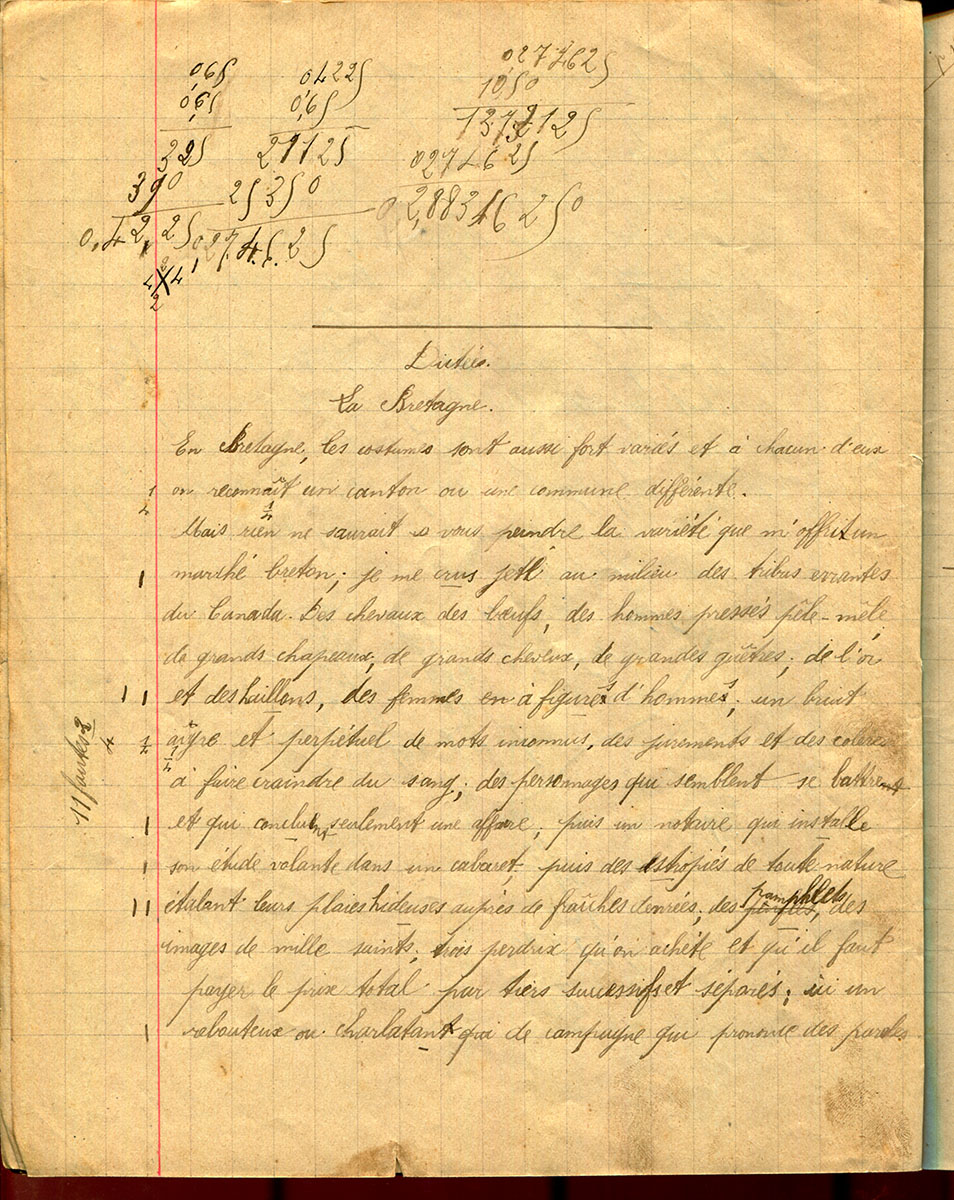 0,65 0,4225 0,274625
0,65 0,65 10,50
325 21125 13731250
390 25350 0274625
0,4225 0,274625 2,88356250
Dictée.
La Bretagne.
En Bretagne, les costumes sont aussi fort variés et à chacun d'eux
on reconnaît un canton ou une commune différente.
Mais rien ne saurait vous peindre la variété que m'offrit un
marché breton; je me crus jeté au milieu des tribus errantes
du Canada. Des chevaux des bœufs, des hommes pressés pêle-mêle
de grands chapeaux, de grands cheveux, de grandes guêtres; de l'or
et des haillons, des femmes en à figures d'hommes; un bruit
aigre et perpétuel de mots inconnus, des jurements et des colères
à faire craindre du sang; des personnages qui semblent se battre
et qui concluent seulement une affaire, puis un notaire qui installe
son étude volante dans un cabaret, puis des estropiés de toute nature
étalant leurs plaies hideuses auprès de fraîches denrées; des pamphlets, des
images de mille saints, trois perdrix qu'on achète et qu'il faut
payer le prix total par tiers successifs et séparés; ici un
rebouteux ou charlatant qui de campagne qui prononce des paroles
11 fautes 3/4